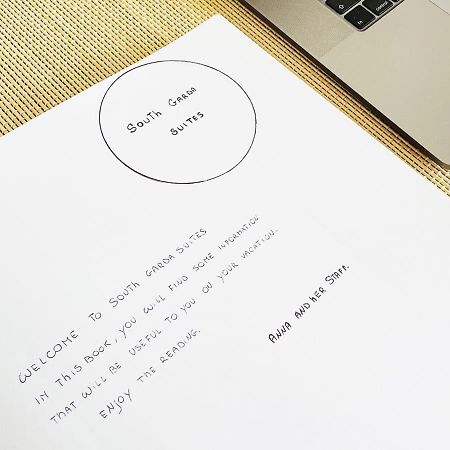 South Garda
Suites
WELCOME TO SOUTH GARDA SUITES
IN THIS BOOK, YOU WILL FIND SOME INFORMATION
THAT WILL BE USEFUL TO YOU ON YOUR VACATION.
ENJOY THE READING.
ANNA AND HER STAFF.